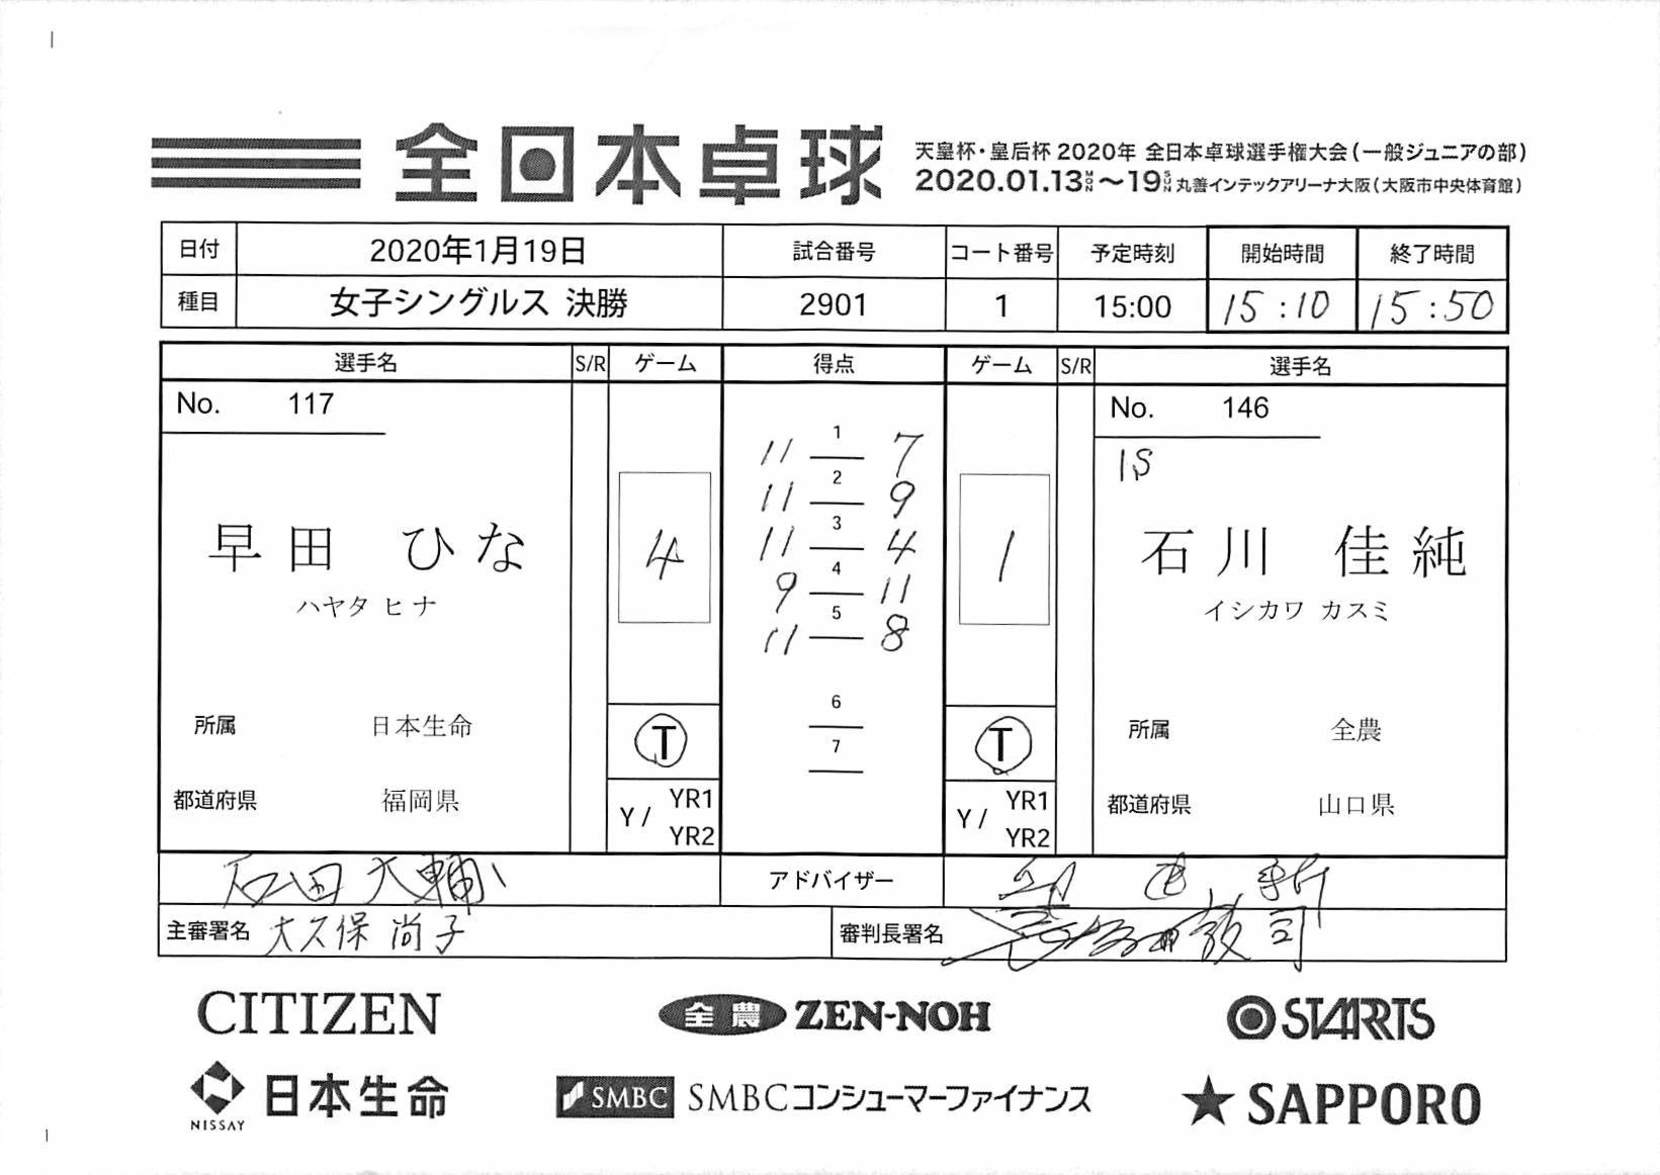 全日本卓球
天皇杯・皇后杯 2020年 全日本卓球選手権大会(一般ジュニアの部)
2020.01.13MON～19SUN 丸善インテックアリーナ大阪(大阪市中央体育館)
日付 2020年1月19日 試合番号 コート番号 予定時刻 開始時間 終了時間
種目 女子シングルス 決勝 2901 1 15:00 15:10 15:50
選手名 S/R ゲーム 得点 ゲーム S/R 選手名
No. 117
No. 146
1S
11 1 7
11 2 9
11 3 4
9 4 11
11 5 8
6
7
4
1
早田 ひな
ハヤタ ヒナ
石川 佳純
イシカワ カスミ
所属 日本生命 T T 所属 全農
都道府県 福岡県 Y / YR1 YR2 Y / YR1 YR2 都道府県 山口県
石田大輔 アドバイザー
主審署名 大久保尚子 審判長署名
CITIZEN 全農 ZEN-NOH STARTS
NISSAY 日本生命 SMBC SMBCコンシューマーファイナンス SAPPORO